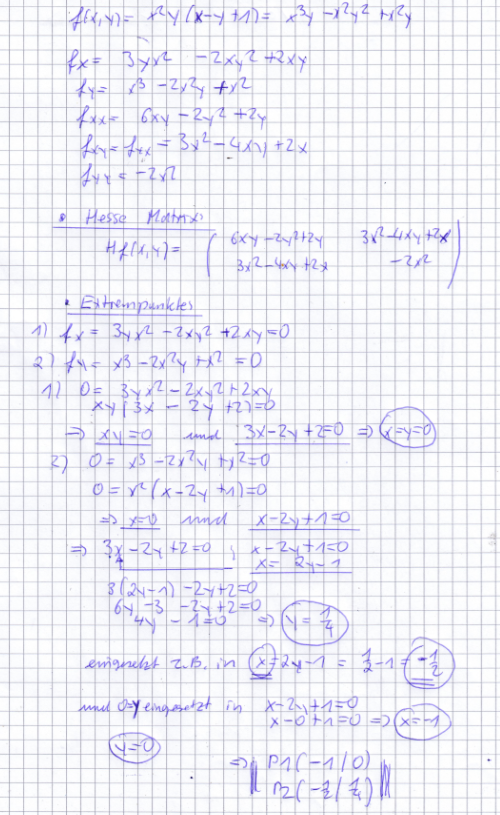 f(x,y) = x²y (x-y+1) = x³y - x²y² + x²y
fx = 3yx² - 2xy² + 2xy
fy = x³ - 2x²y + x²
fxx = 6xy - 2y² + 2y
fxy = fyx = 3x² - 4xy + 2x
fyy = -2x²
• Hesse Matrix:
Hf(x,y) = ( 6xy - 2y² + 2y 3x² - 4xy + 2x
3x² - 4xy + 2x -2x² )
• Extrempunkte:
1) fx = 3yx² - 2xy² + 2xy = 0
2) fy = x³ - 2x²y + x² = 0
1) 0 = 3yx² - 2xy² + 2xy
xy(3x - 2y + 2) = 0
⇒ xy = 0 und 3x - 2y + 2 = 0 ⇒ x=y=0
2) 0 = x³ - 2x²y + x² = 0
0 = x²(x - 2y + 1) = 0
⇒ x=0 und x - 2y + 1 = 0
⇒ 3x - 2y + 2 = 0 ; x - 2y + 1 = 0
x = 2y - 1
3(2y-1) - 2y + 2 = 0
6y - 3 - 2y + 2 = 0
4y - 1 = 0 ⇒ y = 1/4
eingesetzt z.B. in x = 2y - 1 = 1/2 - 1 = -1/2
und 0=y eingesetzt in x - 2y + 1 = 0
x - 0 + 1 = 0 ⇒ x = -1
y = 0
⇒ P1(-1/0)
P2(-1/2 / 1/4)